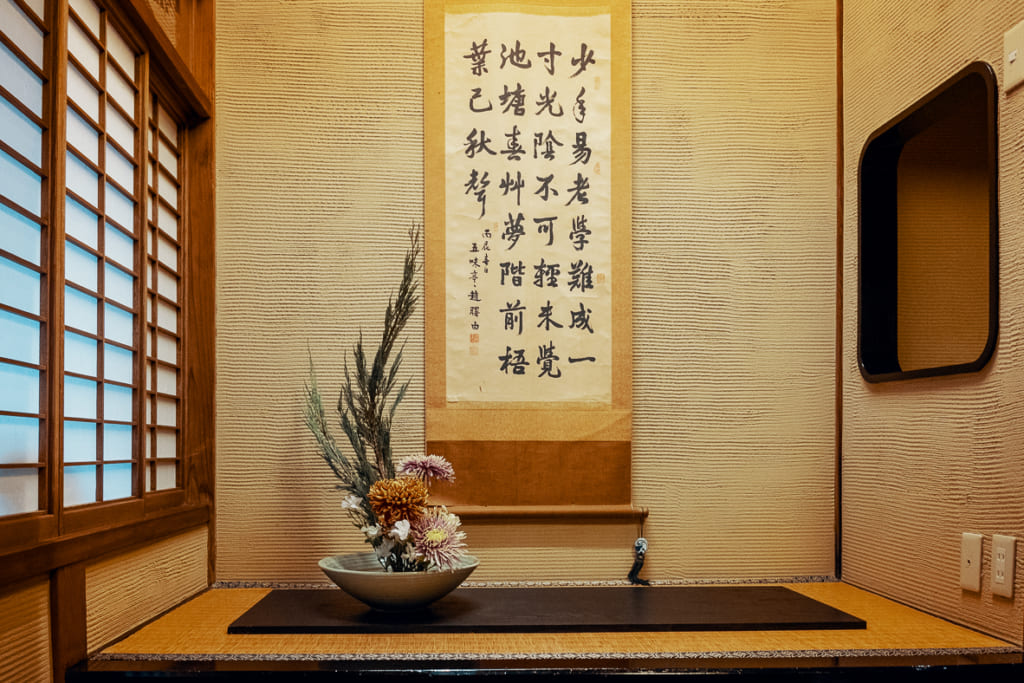 少年易老學難成一
寸光陰不可輕未覺
池塘春艸夢階前梧
葉已秋聲
丙辰春日
五味亭